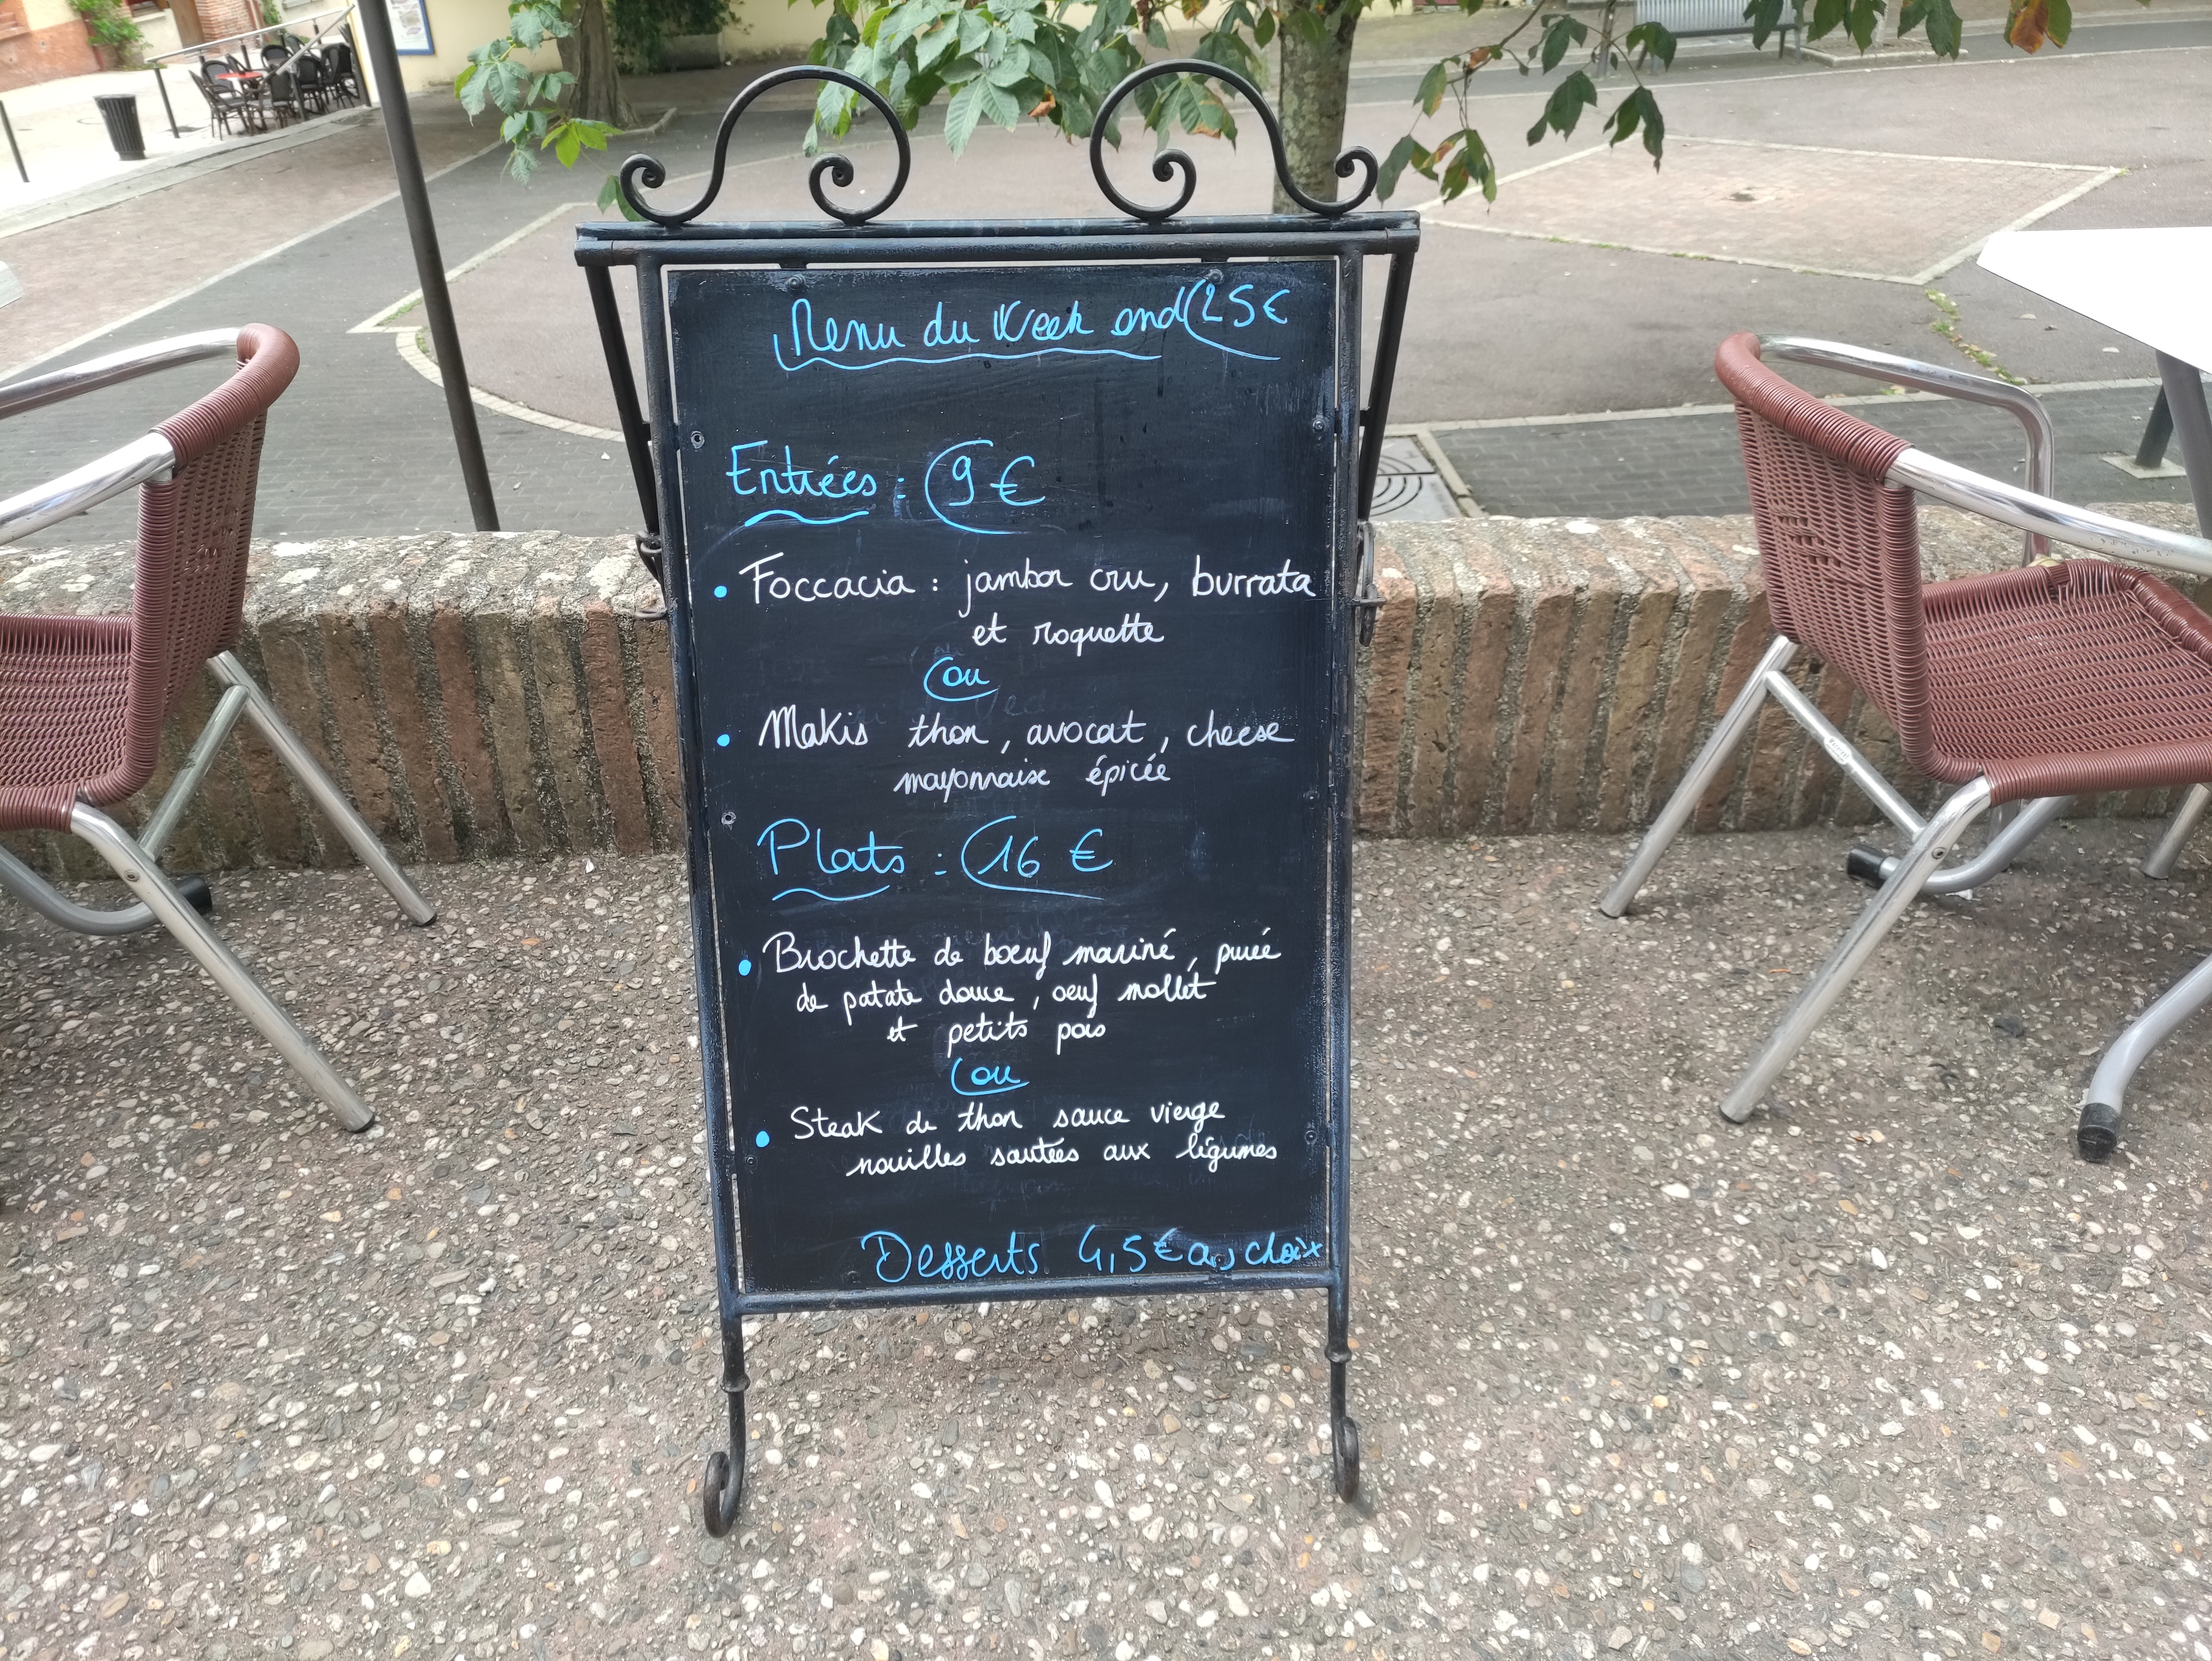 Menu du Week end 25€
Entrées : 9 €
• Foccacia : jambon cru, burrata
et roquette
ou
• Makis thon, avocat, cheese
mayonnaise épicée
Plats : 16 €
• Brochette de boeuf mariné, purée
de patate douce, oeuf mollet
et petits pois
ou
• Steak de thon sauce vierge
nouilles sautées aux légumes
Desserts 4,5€ au choix